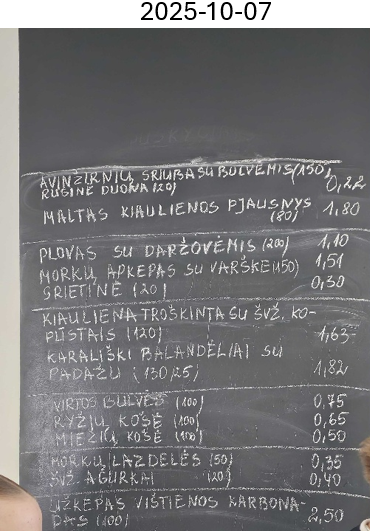 2025-10-07
AVINŽIRNIŲ SRIUBA SU BULVĖMIS (150)
RUGINĖ DUONA (20) 0,22
MALTAS KIAULIENOS PJAUSNYS
(80) 1,80
PLOVAS SU DARŽOVĖMIS (200) 1,10
MORKŲ APKEPAS SU VARŠKE (150) 1,51
GRIETINĖ (20) 0,30
KIAULIENA TROŠKINTA SU ŠVŽ. KO-
PŪSTAIS (120) 1,63
KARALIŠKI BALANDĖLIAI SU
PADAŽU (130/25) 1,82
VIRTOS BULVĖS (100) 0,75
RYŽIŲ KOŠĖ (100) 0,65
MIEŽIŲ KOŠĖ (100) 0,50
MORKŲ LAZDELĖS (50) 0,35
ŠVŽ. AGURKAI (20) 0,40
UŽKEPAS VIŠTIENOS KARBONA-
DAS (100) 2,50